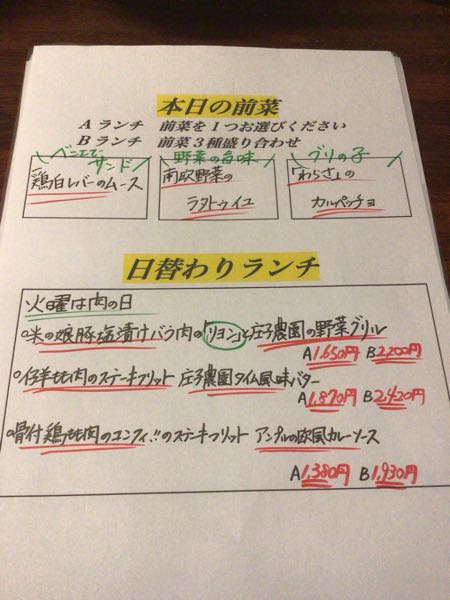 本日の前菜
Aランチ 前菜を1つお選びください
Bランチ 前菜3種盛り合わせ
ベニエで サンド
鶏白レバーのムース
野菜の旨味
南欧野菜の
ラタトゥイユ
ブリの子
「わらさ」の
カルパッチョ
日替わりランチ
火曜は肉の日
○米の娘豚塩漬けバラ肉の「リヨン」と庄子農園の野菜グリル
A1.650円 B2.200円
○仔羊もも肉のステーキフリット 庄子農園タイム風味バター
A1.870円 B2.420円
○骨付鶏もも肉のコンフィ!!のステーキフリット アンプルの欧風カレーソース
A1.380円 B1.930円